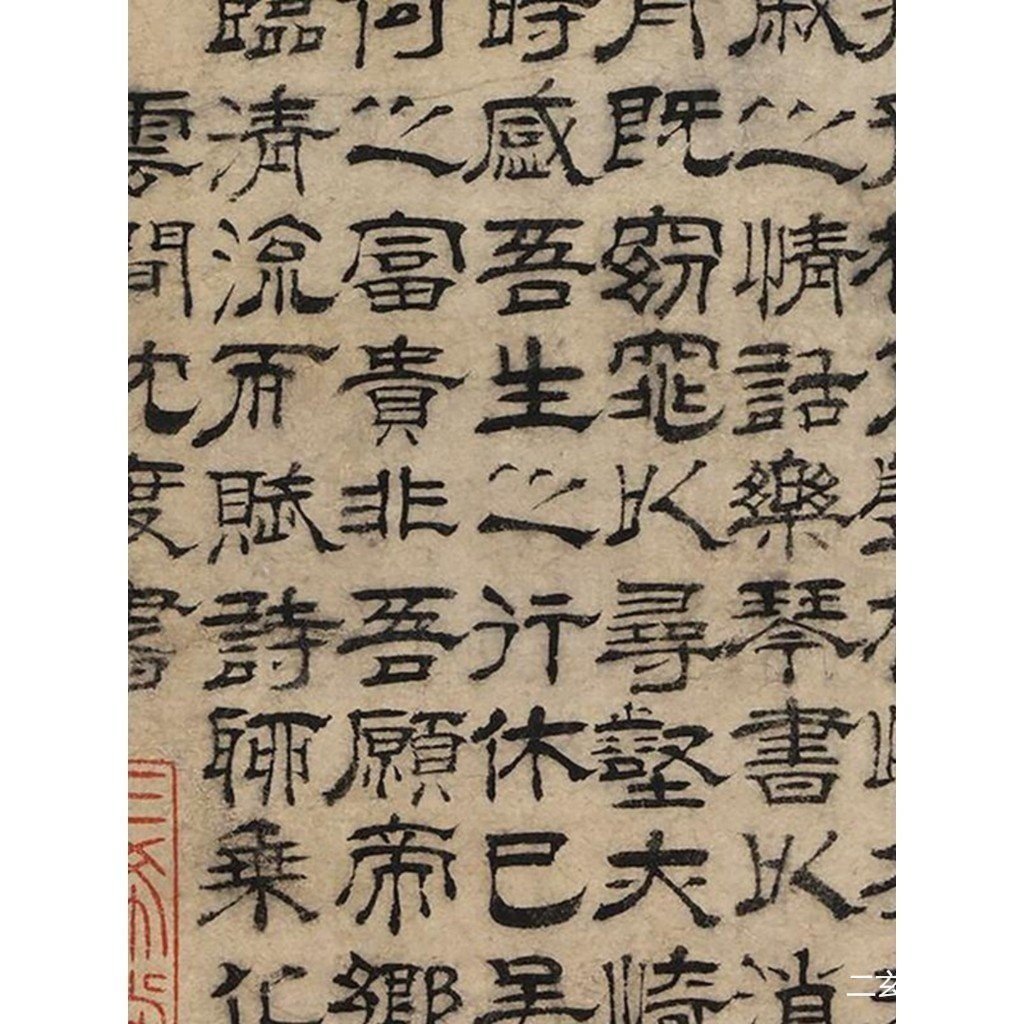 戚之情話樂琴書以消
既窈窕以尋壑亦崎
時感吾生之行休已矣
何之富貴非吾願帝鄉
臨清流而賦詩聊乘化
雲間沈度書
二玄